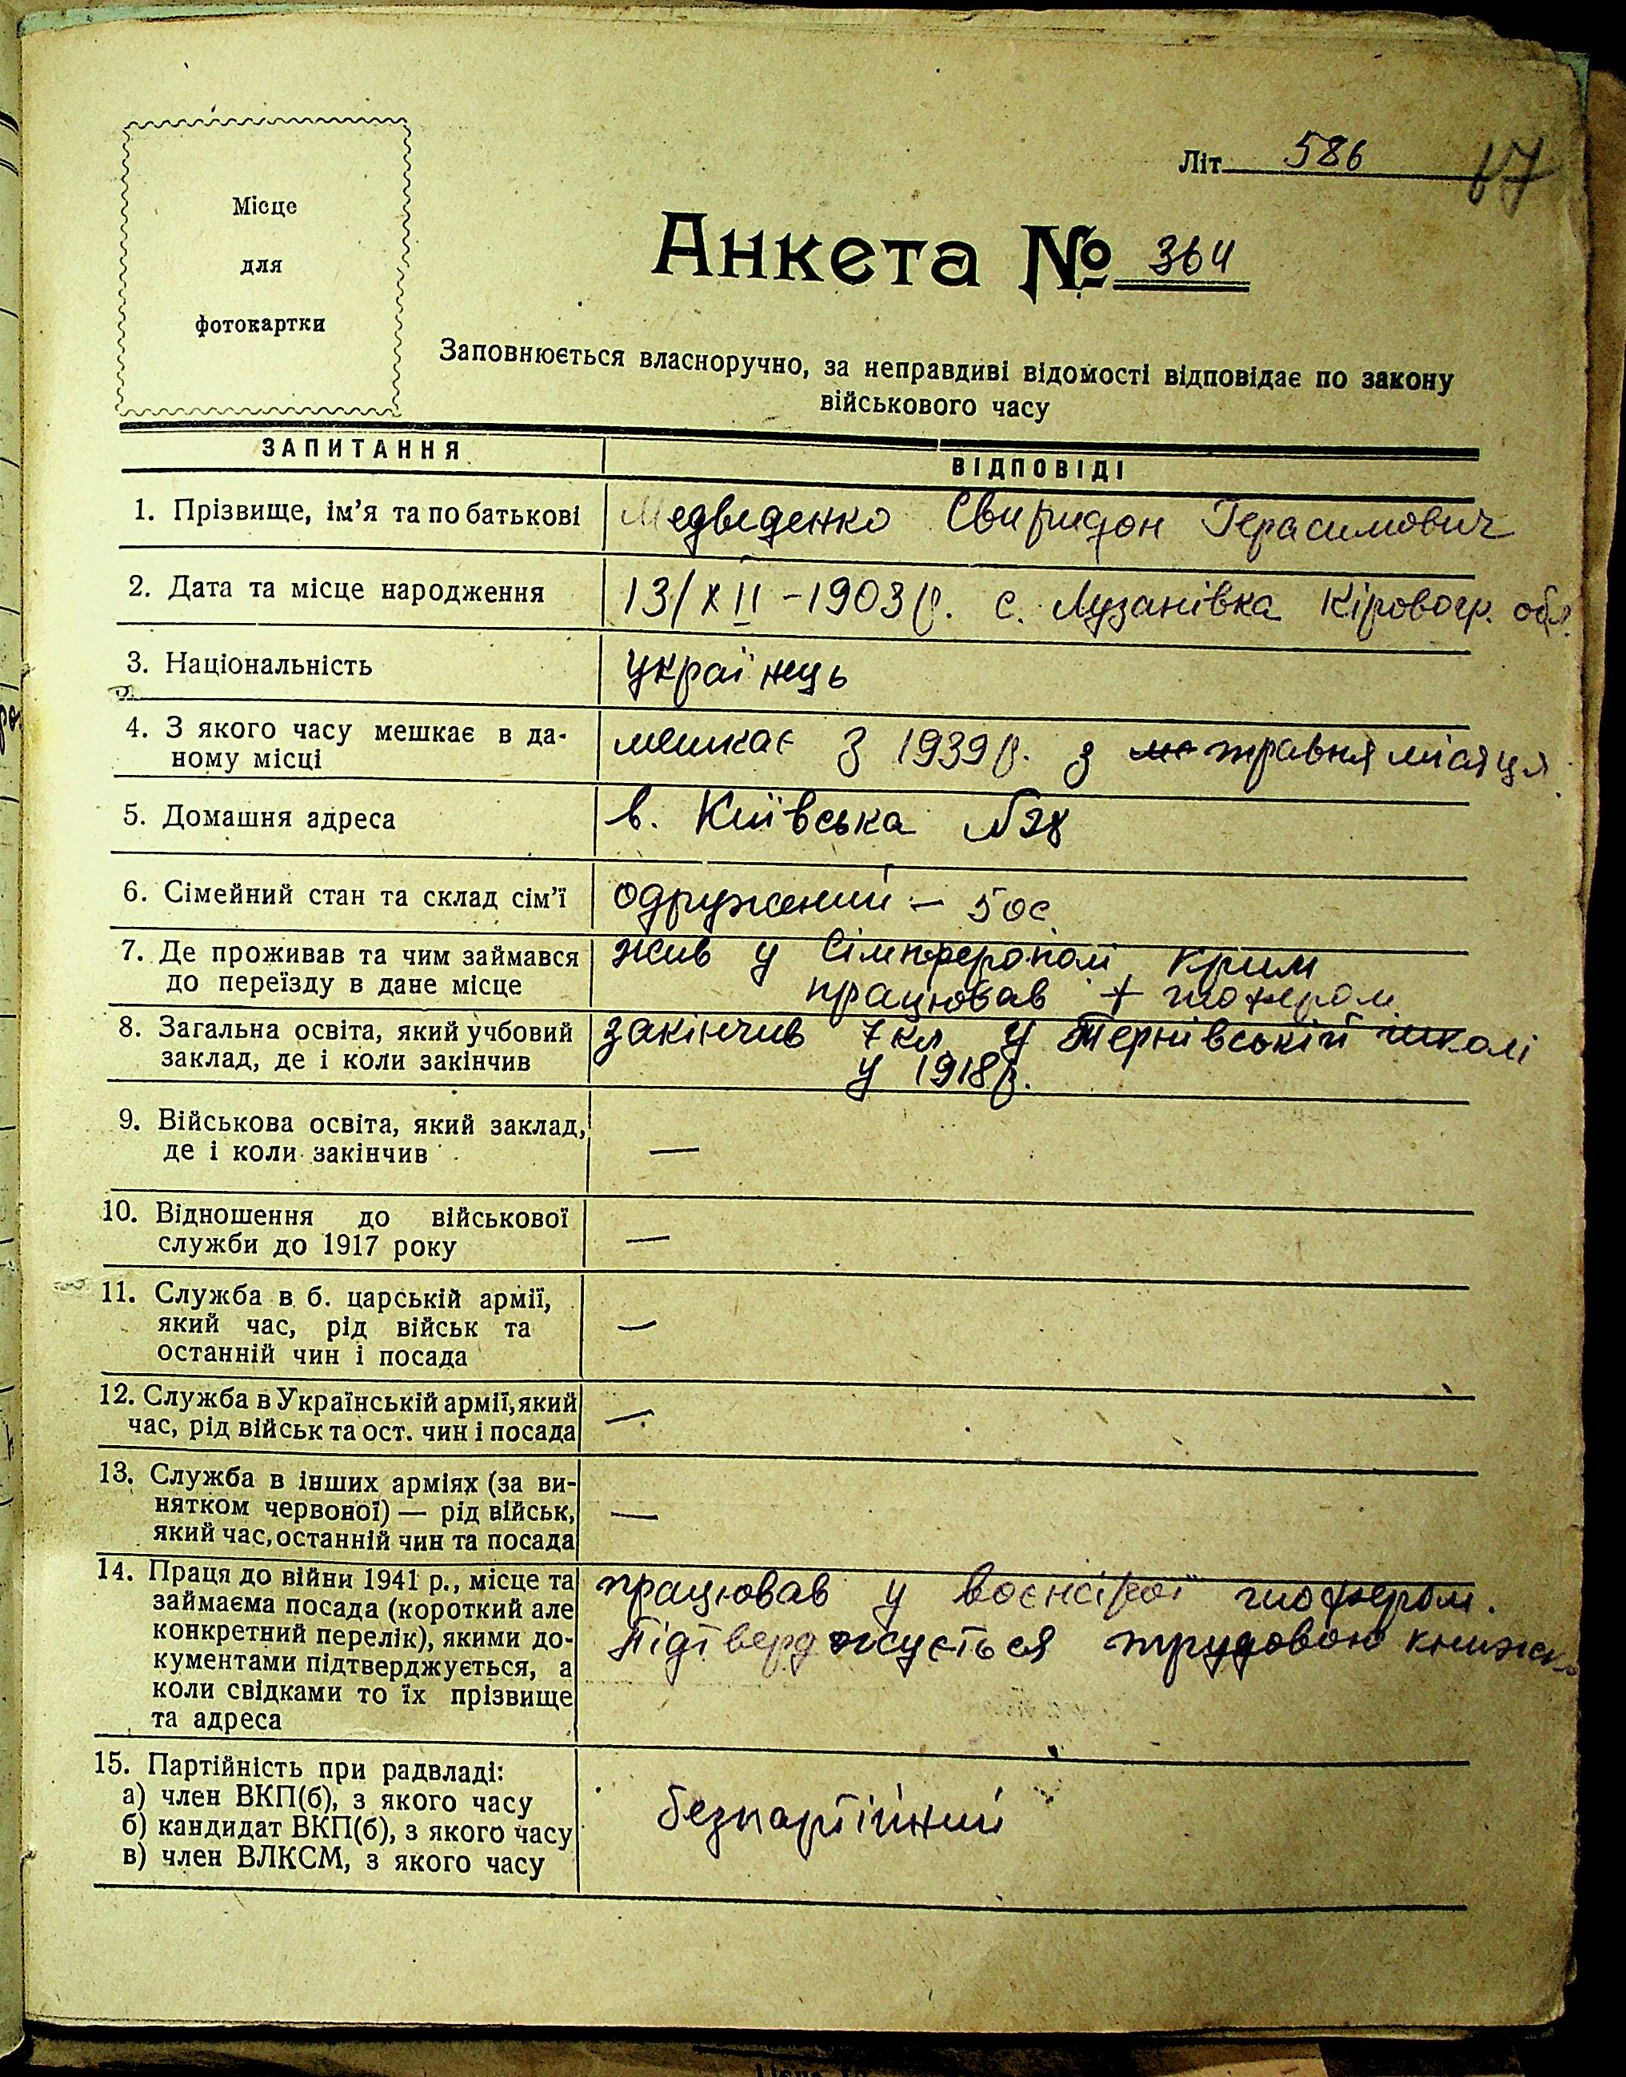 Літ. 586
17
Місце
для
фотокартки
Анкета № 364
Заповнюється власноручно, за неправдиві відомості відповідає по закону
військового часу
ЗАПИТАННЯ
ВІДПОВІДІ
1. Прізвище, ім’я та по батькові
Медведенко Свиридон Герасимович
2. Дата та місце народження
13/XII-1903р. с. Лузанівка Кіровогр. обл.
3. Національність
українець
4. З якого часу мешкає в да-
ному місці
мешкає з 1939р. з травня місяця
5. Домашня адреса
в. Київська №28
6. Сімейний стан та склад сім’ї
одружений – 5 ос
7. Де проживав та чим займався
до переїзду в дане місце
жив у Сімпферополі, Крим
працював шофером
8. Загальна освіта, який учбовий
заклад, де і коли закінчив
закінчив 7 кл. у Тернівській школі
у 1918р.
9. Військова освіта, який заклад,
де і коли закінчив
—
10. Відношення до військової
служби до 1917 року
—
11. Служба в б. царській армії,
який час, рід військ та
останній чин і посада
—
12. Служба в Українській армії, який
час, рід військ та ост. чин і посада
—
13. Служба в інших арміях (за ви-
нятком червоної) — рід військ,
який час, останній чин та посада
—
14. Праця до війни 1941 р., місце та
займаєма посада (короткий але
конкретний перелік), якими до-
кументами підтверджується, а
коли свідками то їх прізвище
та адреса
працював у шофером.
підтверджується трудовою
15. Партійність при радвладі:
а) член ВКП(б), з якого часу
б) кандидат ВКП(б), з якого часу
в) член ВЛКСМ, з якого часу
безпартійний